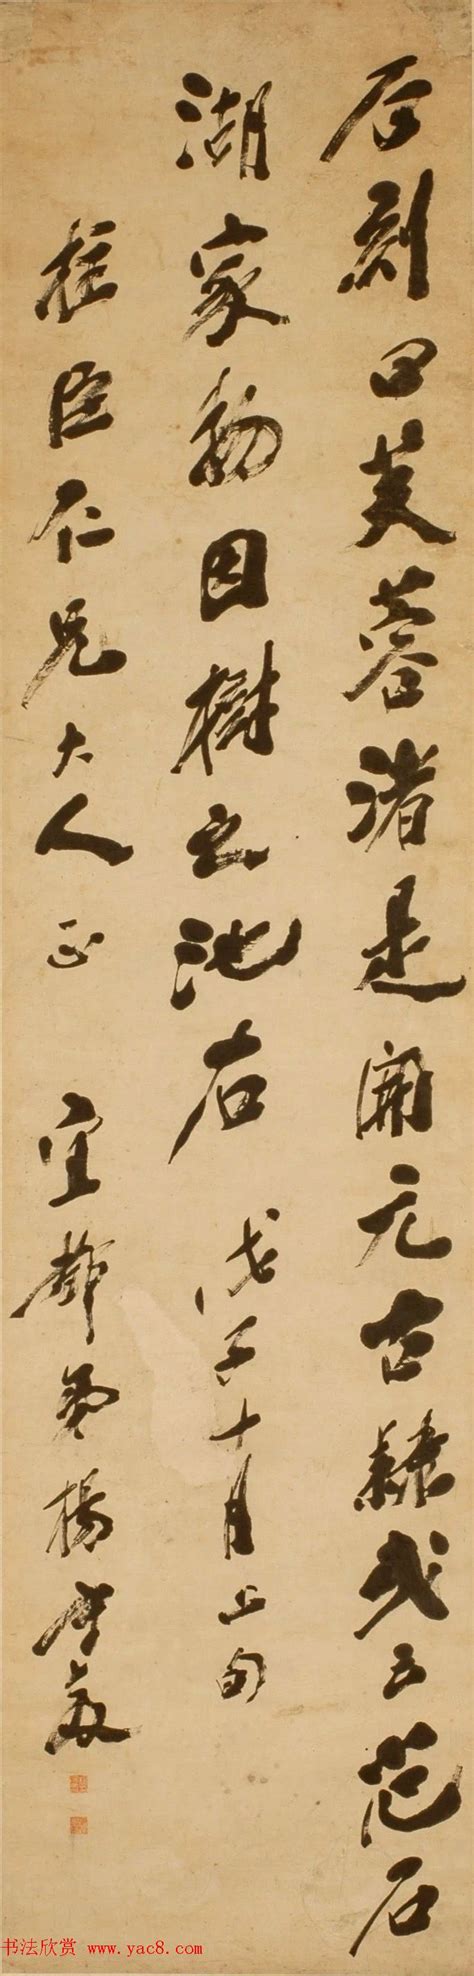 石刻曰芙蓉渚是開元古隸或云范石
湖家物因樹之池右 戊子十月上旬
臣仁兄大人正 宜都弟楊守敬
书法欣赏 www.yac8.com